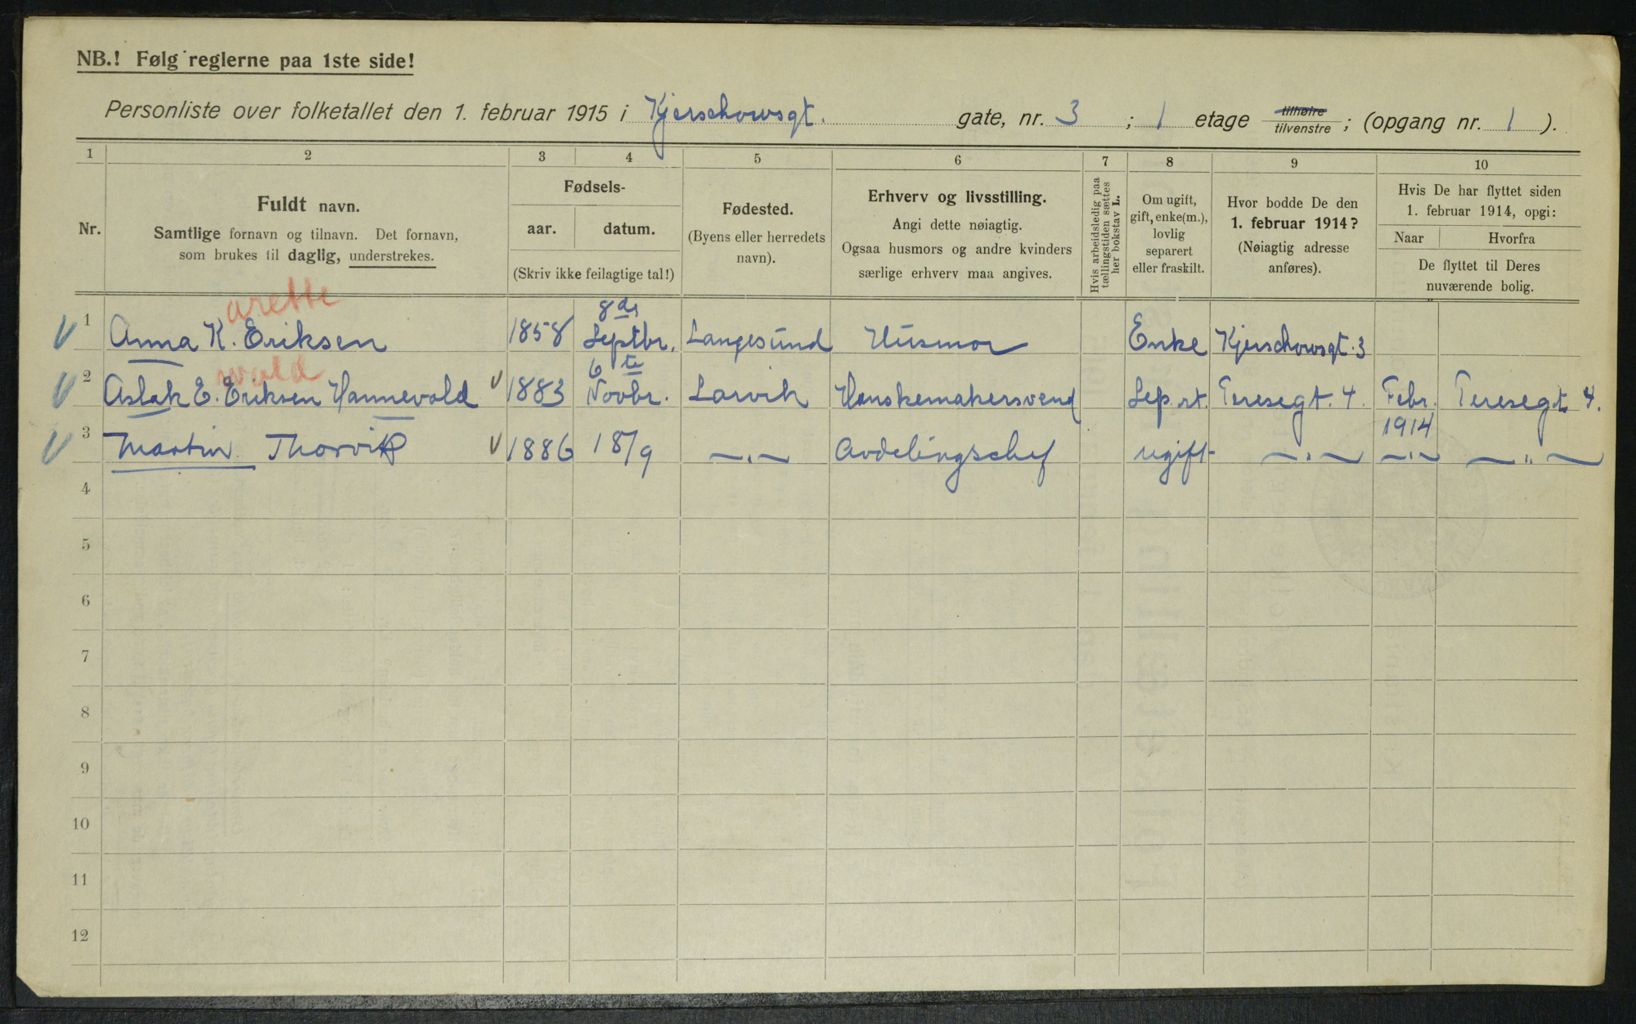 NB.! Følg reglerne paa 1ste side!
Personliste over folketallet den 1. februar 1915 i Kjerschowsgt. gate, nr. 3 ; 1 etage tilhøire tilvenstre ; (opgang nr. 1 ).
1 2 3 4 5 6 7 8 9 10
Nr.
Fuldt navn.
Samtlige fornavn og tilnavn. Det fornavn,
som brukes til daglig, understrekes.
Fødsels-
aar. datum.
(Skriv ikke feilagtige tal!)
Fødested.
(Byens eller herredets
navn).
Erhverv og livsstilling.
Angi dette nøiagtig.
Ogsaa husmors og andre kvinders
særlige erhverv maa angives.
Hvis arbeidsledig paa
tællingstiden sættes
her bokstav L.
Om ugift,
gift, enke(m.),
lovlig
separert
eller fraskilt.
Hvor bodde De den
1. februar 1914?
(Nøiagtig adresse
anføres).
Hvis De har flyttet siden
1. februar 1914, opgi:
Naar Hvorfra
De flyttet til Deres
nuværende bolig.
1 Anna K. Eriksen 1858 8de Septbr. Langesund Husmor Enke Kjerschowsgt. 3
2 Aslak E. Eriksen Hannevold 1883 6te Novbr. Larvik Hanskemakersvend Sep.rt. Teresegt. 4. Febr. 1914 Teresegt 4.
3 Martin Thorvik 1886 18/9 —"— Avdelingschef ugift —"— —"— —"—
4
5
6
7
8
9
10
11
12